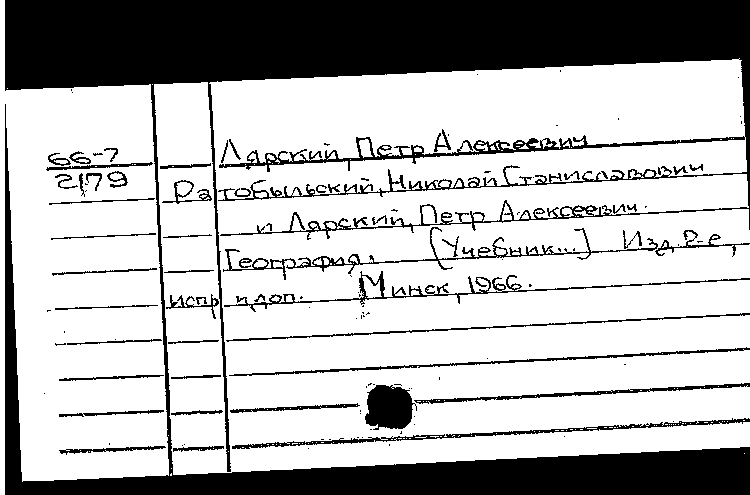 66-7
2179
Лярский, Петр Алексеевич
Ратобыльский, Николай Станиславович
и Лярский, Петр Алексеевич.
География. [Учебник...] Изд. 2-е,
испр. и доп. Минск, 1966.